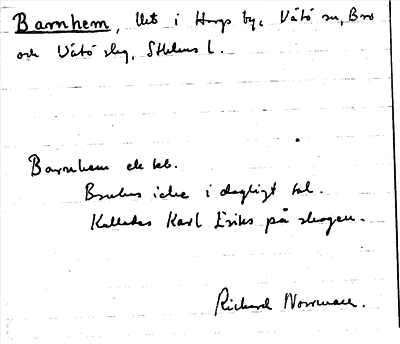 Barnhem, lht i Harg by, Vätö sn, Bro
och Vätö slg, Sthlms l.
Barnhem ek kb.
Brukas icke i dagligt tal.
Kallades Karl Eriks på skogen.
Richard Norrman.